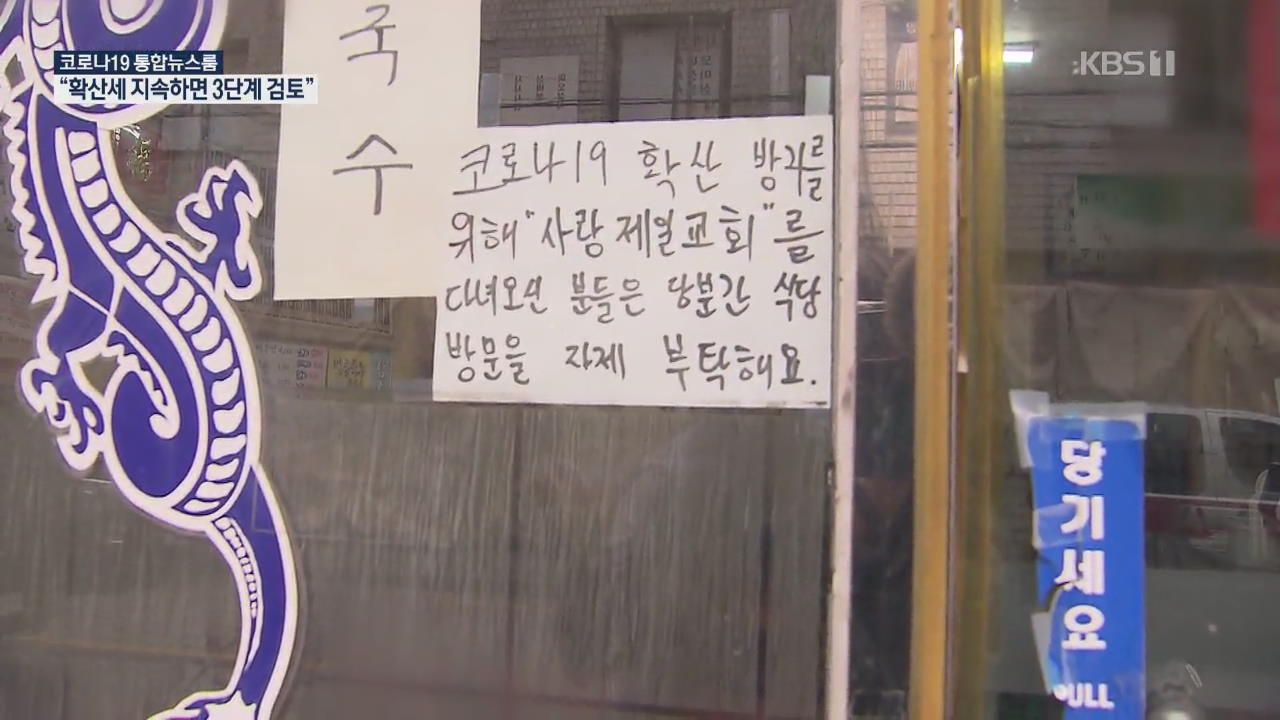 코로나19 통합뉴스룸
“확산세 지속하면 3단계 검토”
KBS 1
국
수
코로나19 확산 방지를
위해 "사랑제일교회"를
다녀오신 분들은 당분간 식당
방문을 자제 부탁해요.
당기세요
PULL